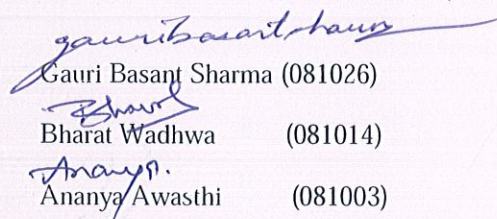 Gauri Basant Sharma (081026)
Bharat
Bharat Wadhwa (081014)
Ananya
Ananya Awasthi (081003)